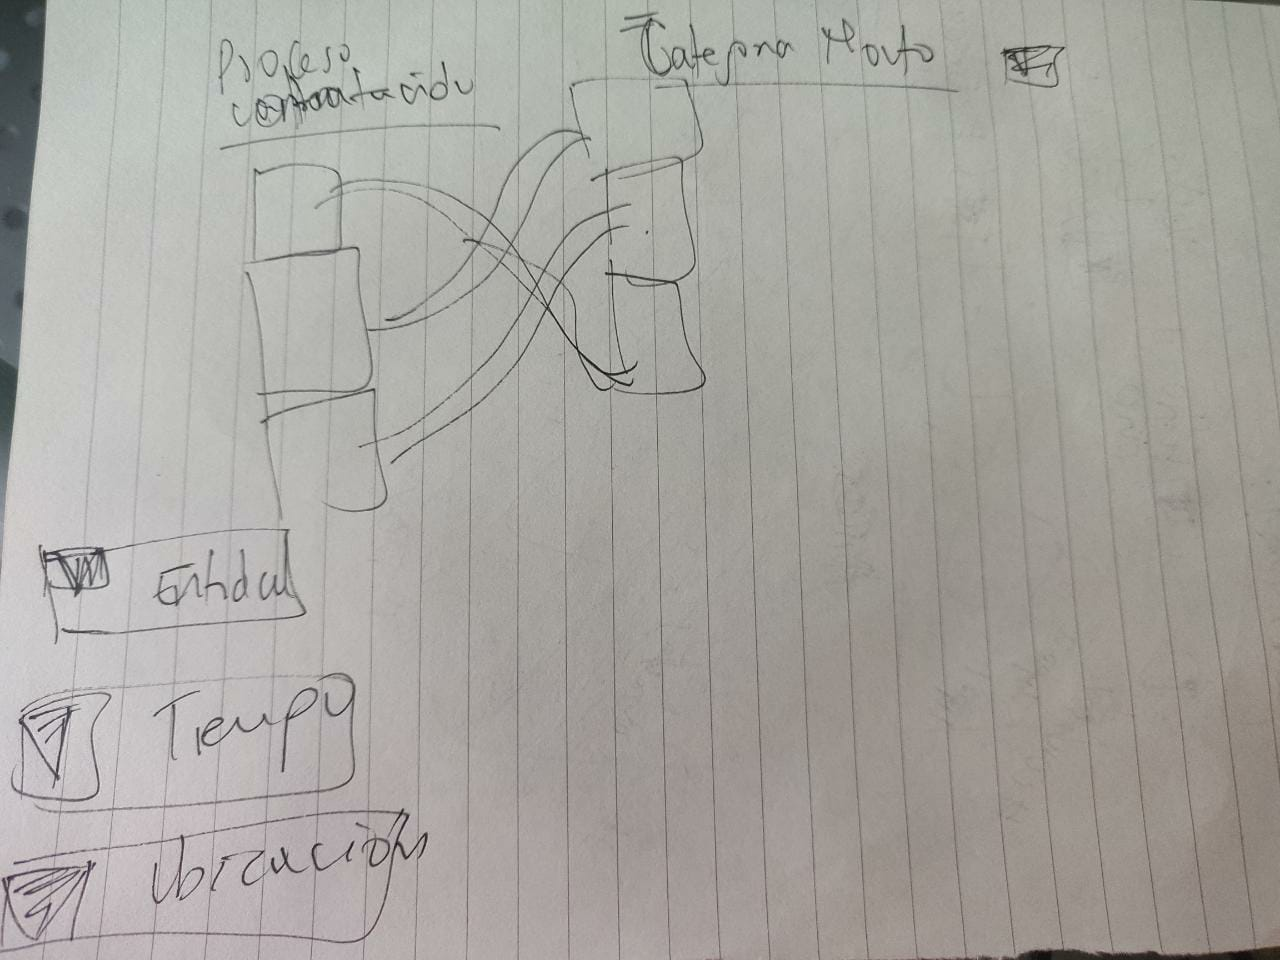 Proceso
contratación
Categoria Monto
Entidad
Tiempo
Ubicación